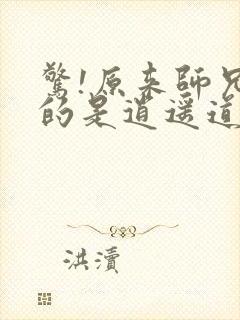 驚!原來師兄
的是逍遥道
洪瀆